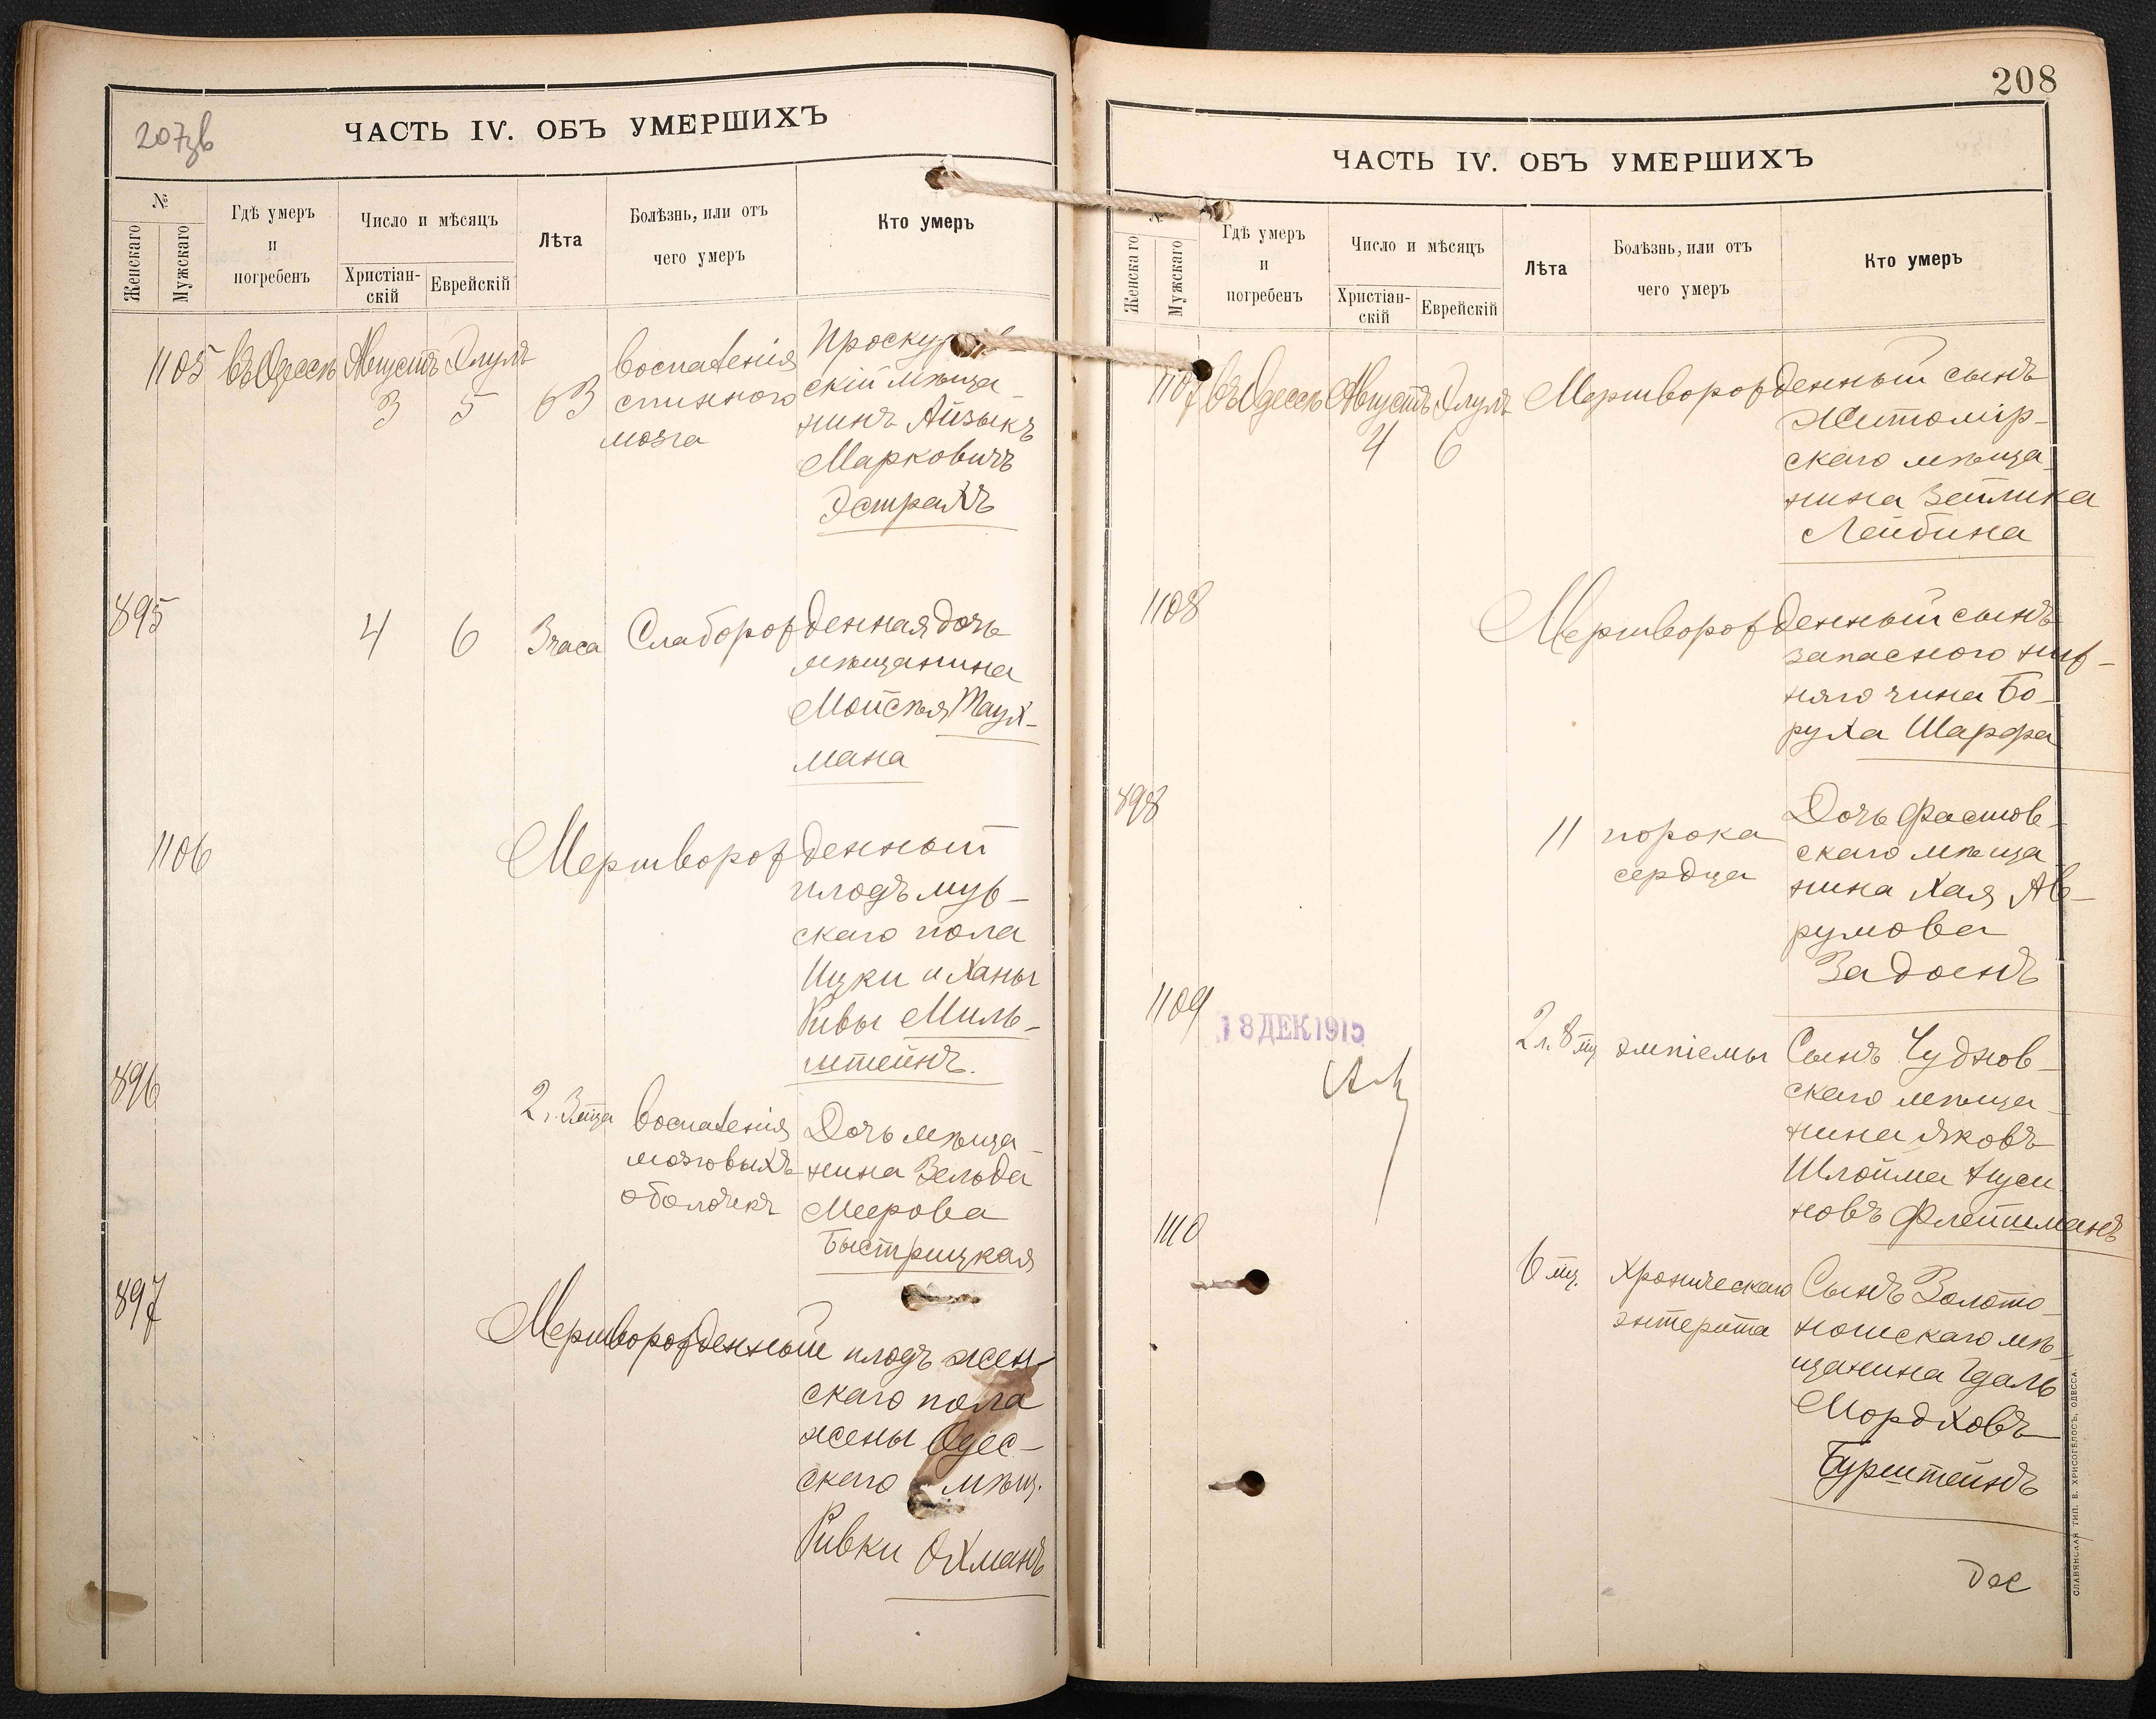 207зв
ЧАСТЬ IV. ОБЪ УМЕРШИХЪ
№
Женскаго
Мужскаго
Гдѣ умеръ
и
погребенъ
Число и мѣсяцъ
Христіан-
скій
Еврейскій
Лѣта
Болѣзнь, или отъ
чего умеръ
Кто умеръ
1105 въ Одессѣ Августъ 3 Элулъ 5 63
воспаленія
спинного
мозга
скій мѣща
нинъ Айзыкъ
Марковичъ
Эстрахъ
895 4 6 3 часа Слаборожденная дочь
мѣщанина
Мойсѣя Таух-
мана
1106 Мертворожденный
плодъ муж-
скаго пола
Ицки и Ханы
Ривы Миль-
штейнъ.
896 2 г. 3 мца
воспаленія
мозговыхъ
оболочекъ
Дочь мѣща
нина Зельда
Меерова
Быстрицкая
897 Мертворожденный плодъ жен-
скаго пола
жены Одес-
скаго мѣщ.
Ривки Охманъ
208
ЧАСТЬ IV. ОБЪ УМЕРШИХЪ
№
Женскаго
Мужскаго
Гдѣ умеръ
и
погребенъ
Число и мѣсяцъ
Христіан-
скій
Еврейскій
Лѣта
Болѣзнь, или отъ
чего умеръ
Кто умеръ
1107 въ Одессѣ Августъ 4 Элулъ 6 Мертворожденный сынъ
Житомір-
скаго мѣща-
нина Зейлика
Лейбина
1108 Мертворожденный сынъ
запасного ниж-
няго чина Бо-
руха Шарфа
898 11
порока
сердца
Дочь Фастов-
скаго мѣща
нина Хая Ав-
румова
Задоенъ
1109 2 л. 8 мц эмпіемы
18 ДЕК 1915
Сынъ Чуднов-
скаго мѣща-
нина Яковъ
Шлойма Нуси
новъ Флейшманъ
1110 6 мц.
Хроническаго
энтерита
Сынъ Золото-
ношскаго мѣ-
щанина Гдаль
Мордховъ
Бурштейнъ
СЛАВЯНСКАЯ ТИП. Е. ХРИСОГЕЛОСЪ, ОДЕССА.